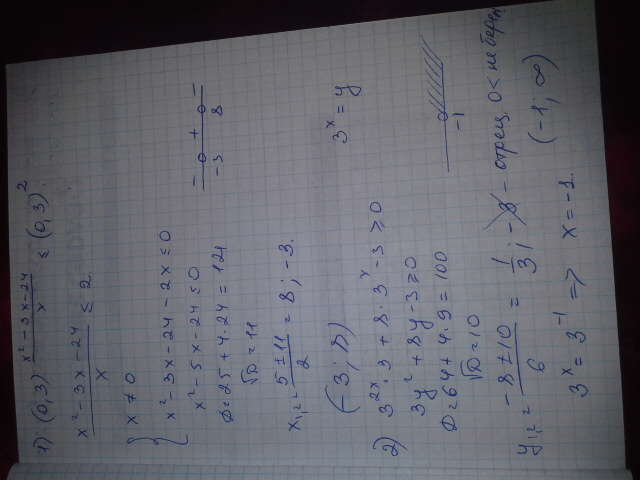 1) (0,3)^{\frac{x² - 3x - 24}{x}} ≤ (0,3)².
\frac{x² - 3x - 24}{x} ≤ 2
{ x ≠ 0
x² - 3x - 24 - 2x ≤ 0
x² - 5x - 24 ≤ 0
- + -
-3 8
D = 25 + 4·24 = 121
√D = 11
x_{1,2} = \frac{5 ± 11}{2} = 8 ; -3.
(-3 ; 8)
3^x = y
2) 3^{2x}·3 + 8·3^x - 3 ≥ 0
3y² + 8y - 3 ≥ 0
D = 64 + 4·9 = 100
-1
√D = 10
y_{1,2} = \frac{-8 ± 10}{6} = \frac{1}{3} ; -3 - отрец. 0< не берем
(-1; ∞)
3^x = 3^{-1} => x = -1.